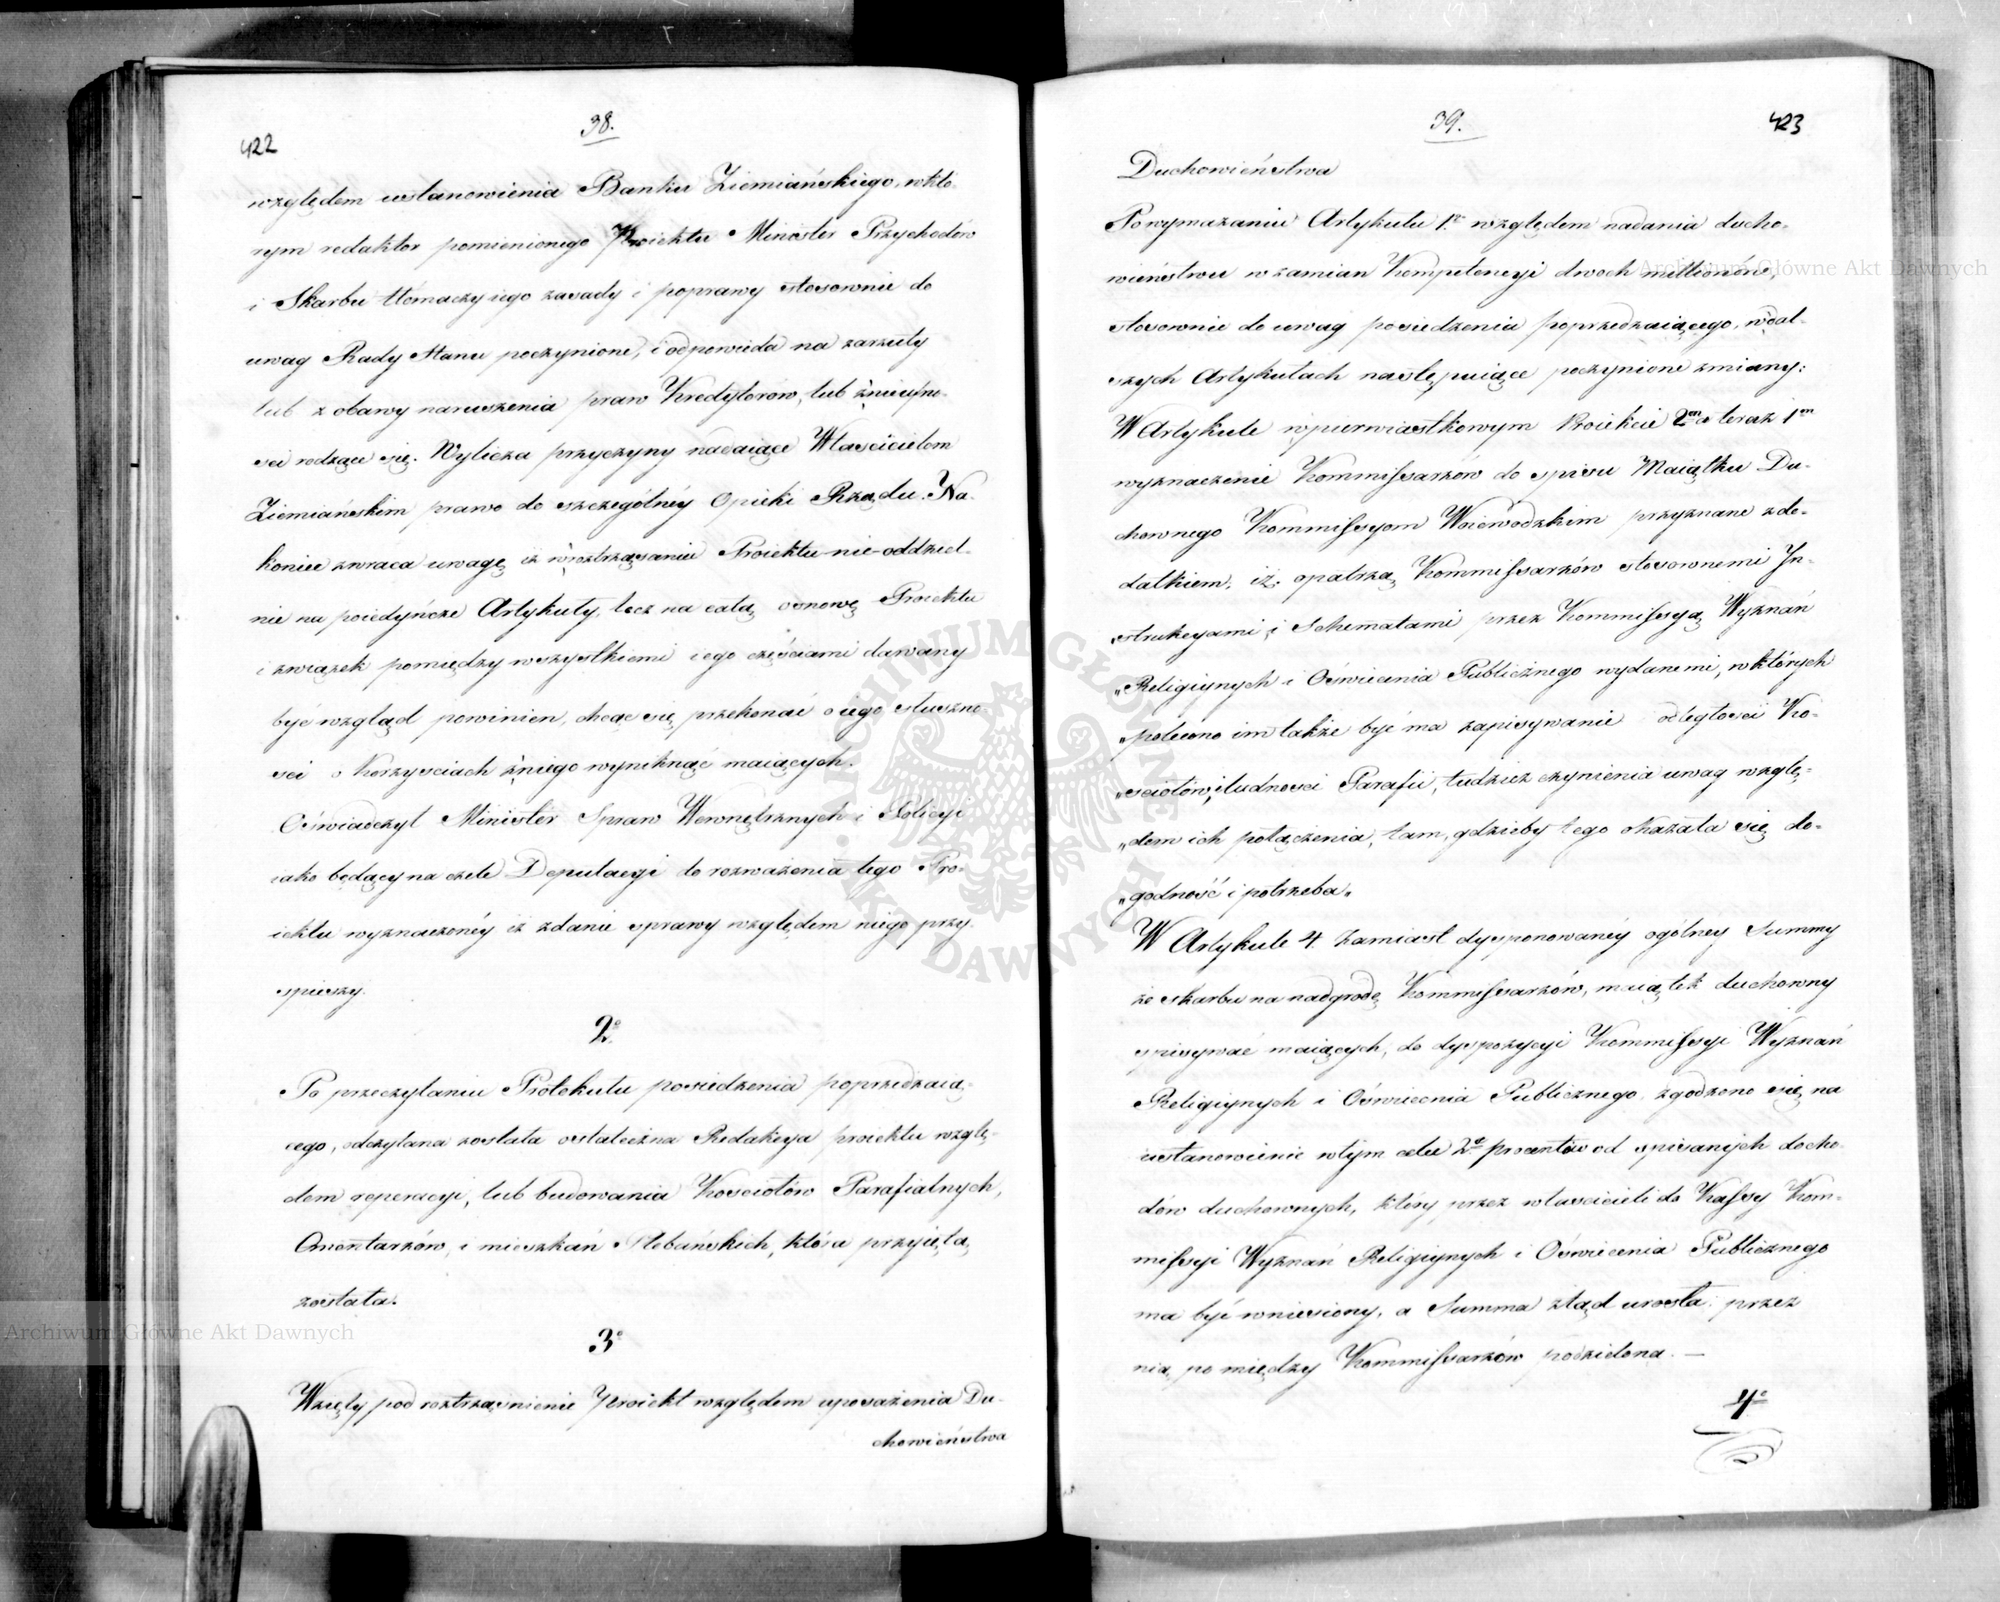 422
38.
względem ustanowienia Banku Ziemiańskiego, w któ-
rym redaktor pomienionego Proiektu Minister Przychodów
i Skarbu tłomaczy iego zasady i poprawy stosownie do
uwag Rady Stanu poczynione, i odpowiada na zarzuty
lub z obawy naruszenia praw Kredytorow, lub z nieufno-
sci rodzące się. Wylicza przyczyny nadaiące Własicielom
Ziemiańskim prawo do szczególnéy Opieki Rządu. Na-
koniec zwraca uwagę iż w roztrząsaniu Proiektu nie oddziel-
nie na poiedyńcze Artykuły, lecz na całą osnowę Proiektu
i związek pomiędzy wszystkiemi iego częściami dawany
być wzgląd powinien, chcąc się przekonać o iego słuszno-
sci o Korzysciach z niego wyniknąć maiących.
Oświadczył Minister Spraw Wewnętrznych i Policyi
iako będący na czele Deputacyi do rozważenia tego Pro-
iektu wyznaczonéy iż zdanie sprawy względem niego przy-
spieszy.
2°
Po przeczytaniu Protokułu posiedzenia poprzedzaią-
cego, odczytana została ostateczna Redakcya proiektu wzglę-
dem reperacyi, lub budowania Kosciołów Parafialnych,
Cmentarzów, i mieszkań Plebańskich, która przyiętą
została.
3°
Wzięty pod roztrząsnienie Proiekt względem uposażenia Du-
chowieństwa
39.
423
Duchowieństwa
Po wymazaniu Artykułu 1go względem nadania ducho-
wieństwu w zamian Kompetencyi dwoch millionów,
stosownie do uwag posiedzenia poprzedzaiącego, w dal-
szych Artykułach następuiące poczynione zmiany:
W Artykule w pierwiastkowym Proiekcie 2m a teraz 1m
wyznaczenie Kommissarzów do spisu Maiątku Du-
chownego Kommissyom Woiewódzkim przyznane z do-
datkiem, iż: opatrzą Kommissarzów stosownemi In-
strukcyami i Schematami przez Kommissyą Wyznań
„Religiynych i Oświecenia Publicznego wydanemi, w których
„polecono im także być ma zapisywanie odległosci Ko-
„sciołów, i ludnosci Parafii, tudzież czynienia uwag wzglę-
„dem ich połączenia, tam, gdzieby tego okazała się do-
„godność i potrzeba„
W Artykule 4. Zamiast dysponowanéy ogólney Summy
ze skarbu na nadgrodę Kommissarzów, maiątek duchowny
spisywać maiących, do dyspozycyi Kommissyi Wyznań
Religiynych i Oświecenia Publicznego, zgodzono się na
ustanowienie w tym celu 2o procentów od spisanych docho-
dów duchownych, który przez właścicieli do Kassy Kom-
missyi Wyznań Religiynych i Oświecenia Publicznego
ma być wniesiony, a Summa ztąd urosła przez
nią po między Kommissarzów podzielona. —
4°
Archiwum Główne Akt Dawnych
Archiwum Główne Akt Dawnych
ARCHIWUM GŁÓWNE AKT DAWNYCH